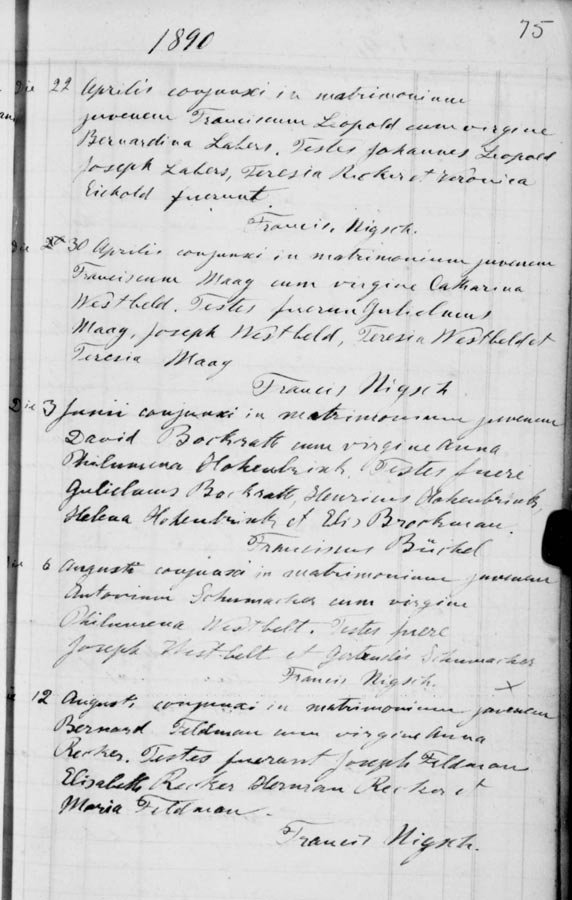 75
1890
Die 22 Aprilis conjunxi in matrimonium
juvenem Franciscum Leopold cum virgine
Bernardina Labers. Testes Johannes Leopold
Joseph Labers, Teresia Recker et Veronica
Eickold fuerunt.
Francis. Nigsch.
Die 30 Aprilis conjunxi in matrimonium juvenem
Franciscum Maag cum virgine Catharina
Westbeld. Testes fuerun Gulielmus
Maag, Joseph Westbeld, Teresia Westbeld et
Teresia Maag
Francis Nigsch.
Die 3 Junii conjunxi in matrimonium juvenem
David Bockratt cum virgine Anna
Philumena Hohenbrink. Testes fuere
Gulielmus Bockratt, Henricus Hohenbrink,
Helena Hohenbrink et Elis Brockman.
Franciscus Büchel
6 Augusti conjunxi in matrimonium juvenem
Antonium Schumacher cum virgine
Philumena Westbelt. Testes fuere
Joseph Westbelt et Gertrudis Schumacher
Francis Nigsch. X
12 Augusti conjunxi in matrimonium juvenem
Bernard Feldman cum virgine Anna
Recker. Testes fuerunt Joseph Feldman
Elisabeth Recker Herman Recker et
Maria Feldman.
Francis Nigsch.